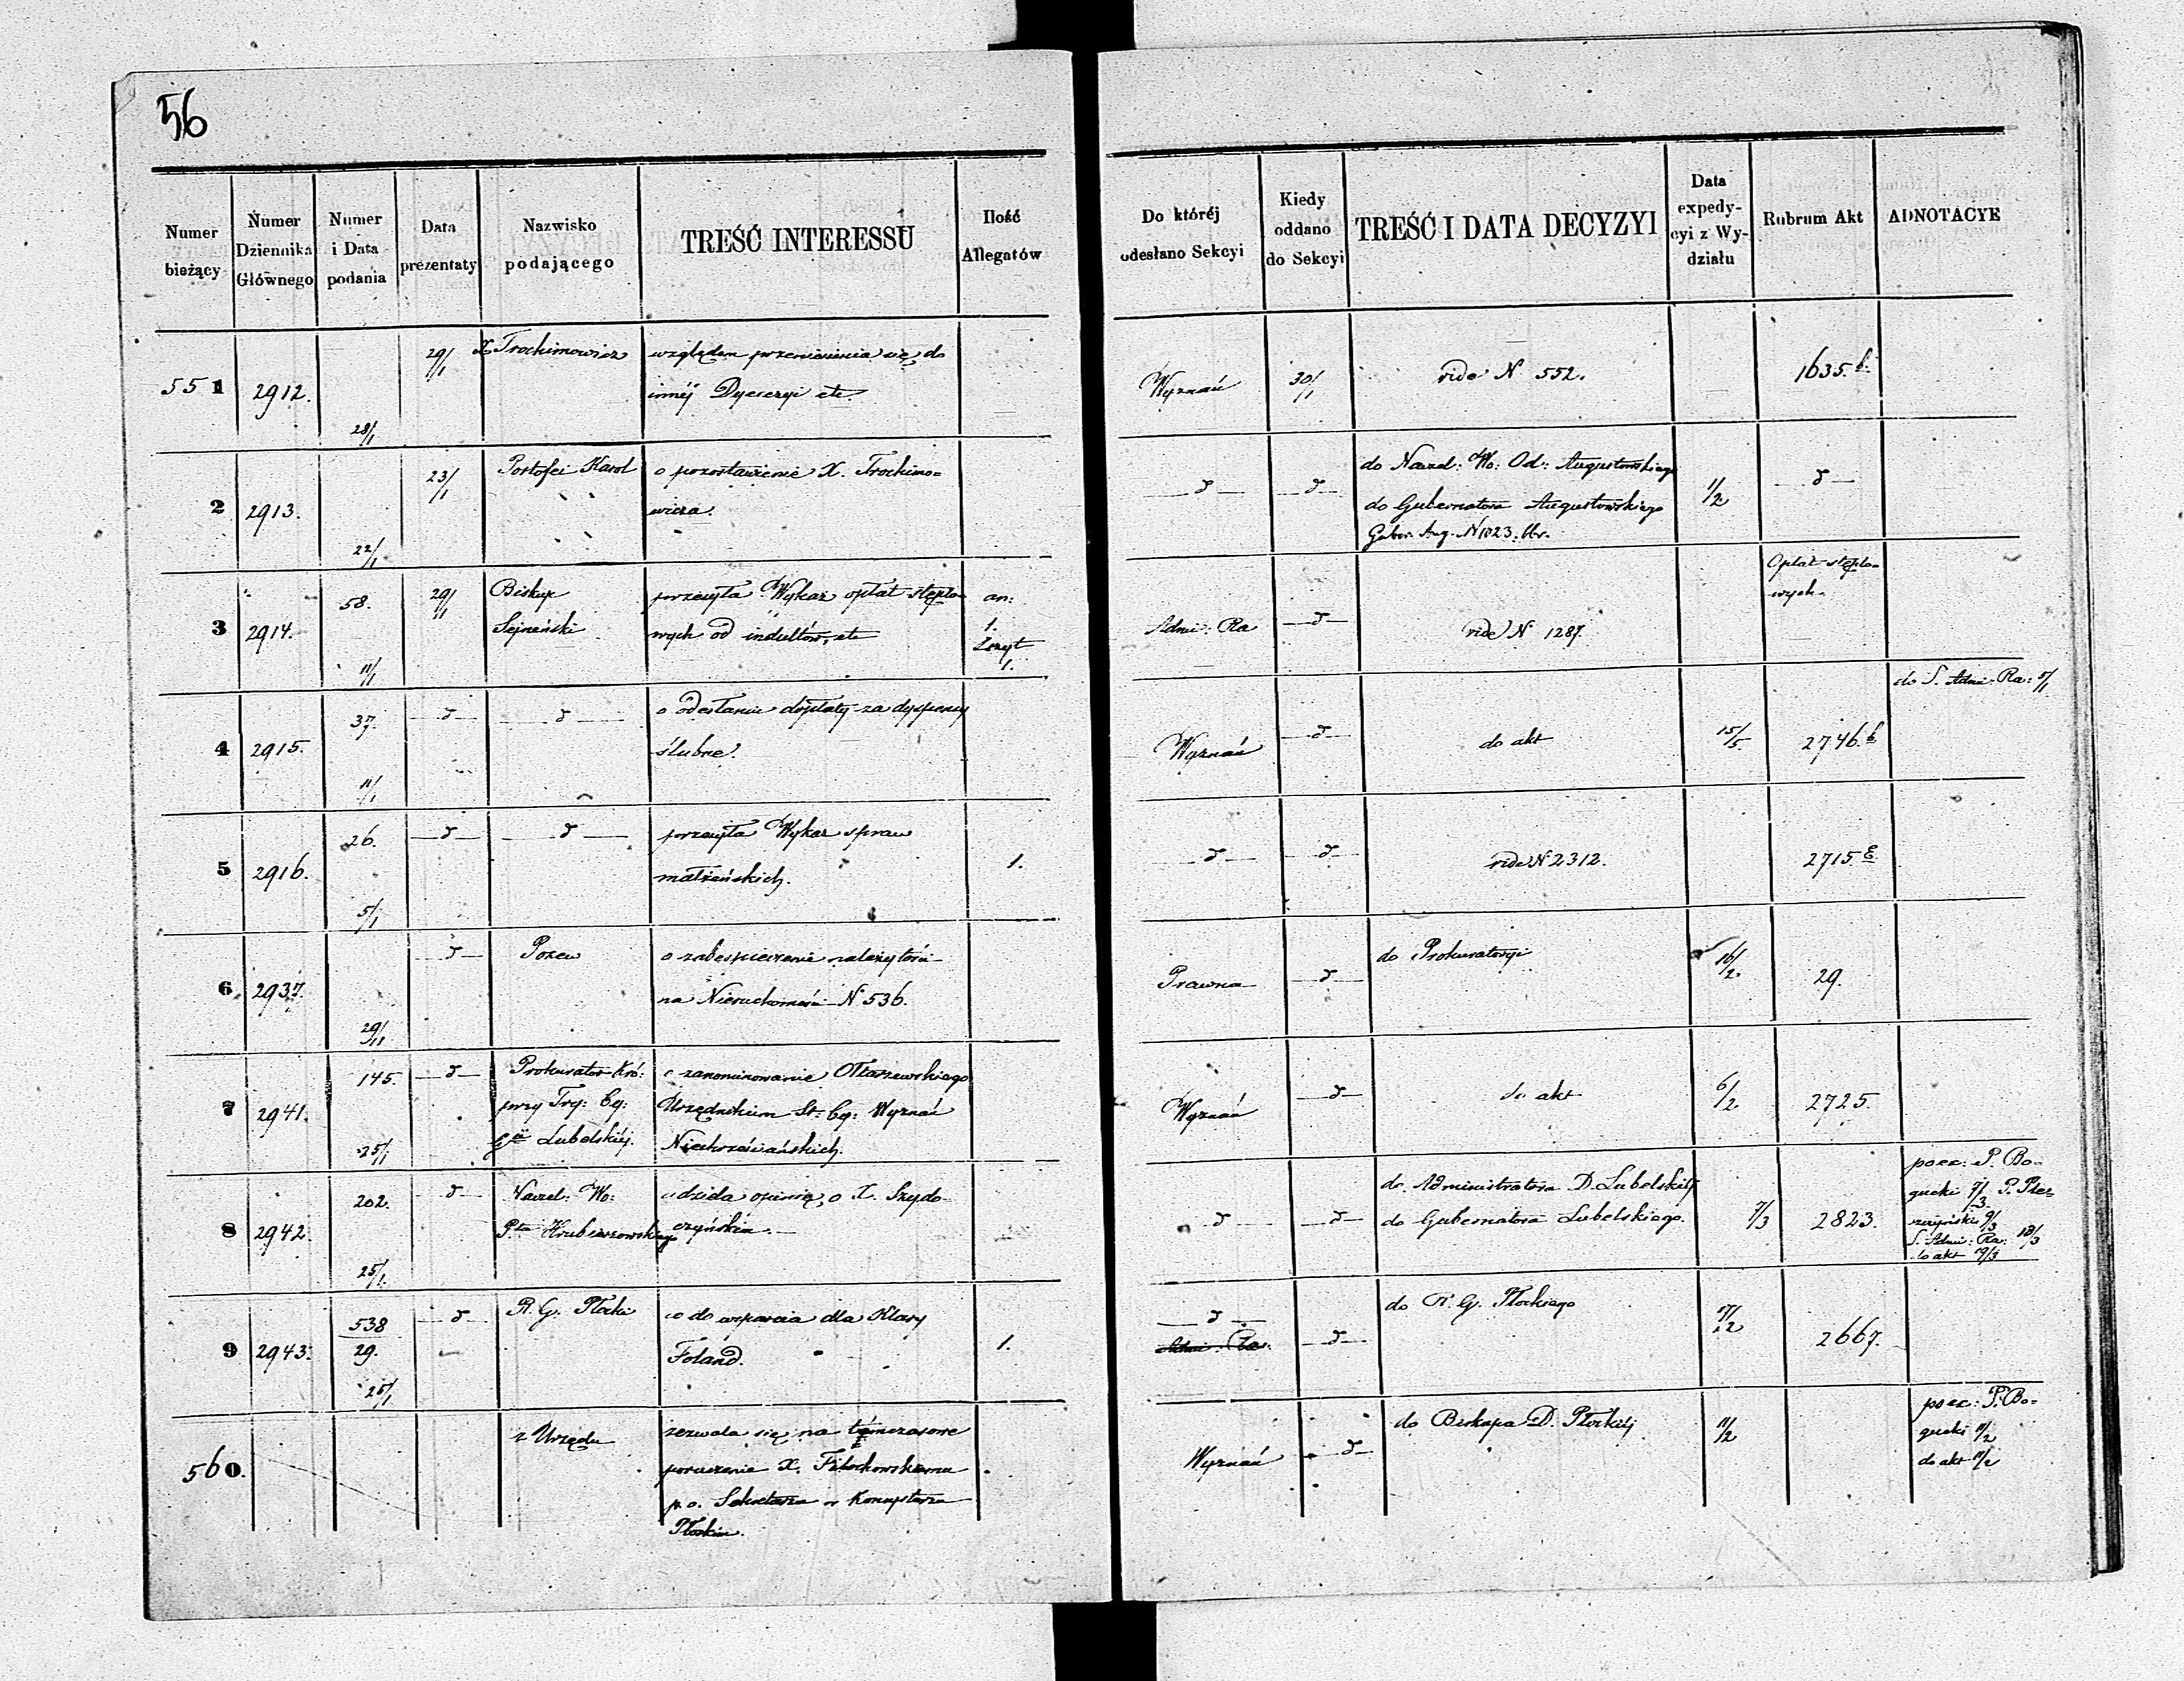 56
Numer bieżący
Numer Dziennika Głównego
Numer i Data podania
Data prezentaty
Nazwisko podającego
TREŚĆ INTERESSU
Ilość Allegatów
Do któréj odesłano Sekcyi
Kiedy oddano do Sekcyi
TREŚĆ I DATA DECYZYI
Data expedycyi z Wydziału
Rubrum Akt
ADNOTACYE
551
2912.
28/1
29/1
X. Trochimowicz
względem przeniesienia się do
innéj Dyecezyi etc.
Wyznań
30/1
vide N 552.
1635.
2
2913.
22/1
23/1
Karol
o pozostawienie X. Trochimo=
wicza.
d
d
do Naczel: Wo: Od: Augustowskiego
do Gubernatora Augustowskiego
Guber. Aug. N 1023.
1/2
d
3
2914.
58.
11/1
29/1
Biskup
Sejneński
przesyła Wykaz opłat stęplo=
wych od indultów, etc
an:
1.
Zszyt
1.
Admi: Ra
d
vide N 1287.
Opłat stęplo=
wych.
4
2915.
37.
11/1
d
d
o odesłanie dopłaty za dyspensy
ślubne.
Wyznań
d
do akt
15/5
2746.b
do S. Admi: Ra:
5
2916.
26.
5/1
d
d
przesyła Wykaz spraw
małżeńskich.
1.
d
d
vide N 2312.
2715.E
6
2937.
29/11
d
Pozew
o zabespieczenie należytości
na Nieruchomości N 536.
Prawna
d
do Prokuratoryi
16/2
29.
7
2941.
145.
25/1
d
Prokurator Kró:
przy Try: Cy:
Gii Lubelskiéj.
o zanominowanie Ołtarzewskiego
Urzędnikiem St: Cy: Wyznań
Niechrześciańskich.
Wyznań
d
do akt
6/2
2725.
8
2942.
202.
25/1
d
Naczel: Wo:
Ptu Hrubieszowskiego
udziela opinię o X. Szydo=
czyńskim.
d
d
do Administratora D. Lubelskiéj
do Gubernatora Lubelskiego.
7/3
2823.
poez: P. Bo=
gucki 7/3 P.
9/3
S. Admi: Ra: 18/3
do akt 19/3
9
2943.
538
29.
25/1
d
R. G. Płocki
co do wsparcia dla Klary
Foland.
1.
d
Admi: Ra:
d
do R. G. Płockiego
17/2
2667.
560.
z Urzędu
zezwala się na tymczasowe
poruczenie X.
p. o. Sekretarza w Konsystorzu
Płockim.
Wyznań
d
do Biskupa D. Płockiéj
11/2
poez: P. Bo=
gucki 11/2
do akt 11/2